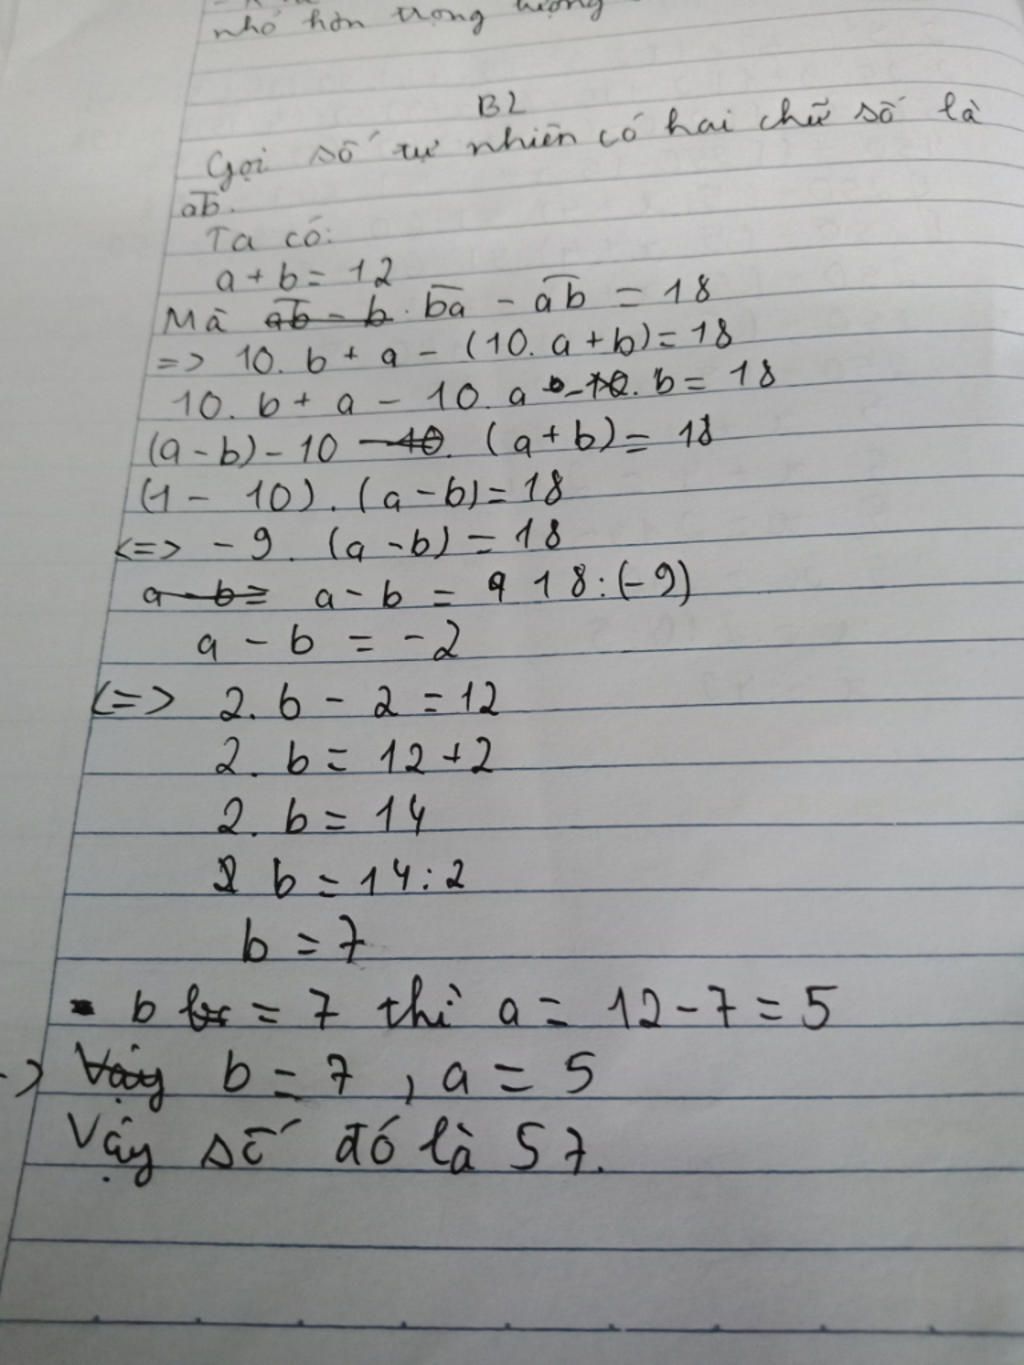 nhỏ hơn trọng lượng
B2
Gọi số tự nhiên có hai chữ số là
ab.
Ta có:
a + b = 12
Mà ab - b. ba - ab = 18
=> 10. b + a - (10. a + b) = 18
10. b + a - 10. a - b = 18
(a - b) - 10 - 10. (a + b) = 18
(1 - 10). (a - b) = 18
<=> - 9. (a - b) = 18
a - b = a - b = 9 18 : (-9)
a - b = -2
<=> 2. b - 2 = 12
2. b = 12 + 2
2. b = 14
b = 14 : 2
b = 7
- b = 7 thì a = 12 - 7 = 5
-> Vậy b = 7, a = 5
Vậy số đó là 57.